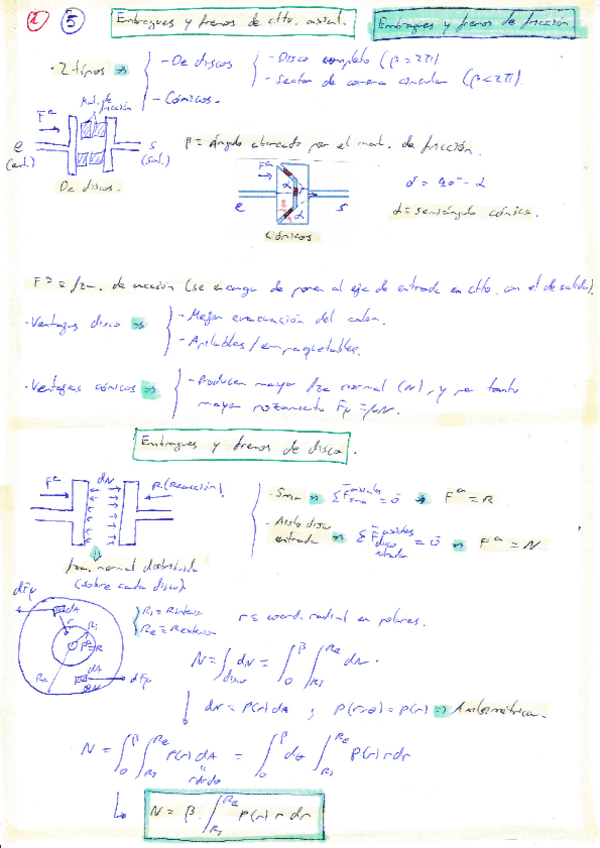 2 5 Embragues y frenos de ctto. axial. Embragues y frenos de fricción
· 2 tipos ⇒ - De discos - Disco completo (β = 2π)
- Sector de corona circular (β < 2π).
- Cónicos.
Mat. de fricción
Fᵃ
e (ent.) s (sal.)
De discos.
β ≡ Ángulo abarcado por el mat. de fricción.
Fᵃ
α
α
e s
Cónicos
α ≡ semiángulo cónico.
Fᵃ ≡ fza. de acción (se encarga de poner al eje de entrada en ctto. con el de salida).
· Ventajas disco ⇒ - Mejor evacuación del calor.
- Apilables / empaquetables.
· Ventajas cónicos ⇒ - Producen mayor fza normal (N), y por tanto
mayor rozamiento Fμ = μN.
Embragues y frenos de disco.
Fᵃ dN R (Reacción).
fza. normal distribuida
(sobre cada disco)
- Sma ⇒ Σ F axiales sma = 0 ⇒ Fᵃ = R
- Aíslo disco entrada ⇒ Σ F axiales disco entrada = 0 ⇒ Fᵃ = N
dFμ dA
r R₁
Re
dA
dN dFμ
R₁ ≡ R interno
Re ≡ R externo
r ≡ coord. radial en polares.
N = ∫disco dN = ∫₀^β ∫_R₁^Re dN.
dN = P(r) dA ; P(r,θ) = P(r) ⇒ Axisimétrica.
N = ∫₀^β ∫_R₁^Re P(r) dA = ∫₀^β dθ ∫_R₁^Re P(r) r dr
r dr dθ
N = β · ∫_R₁^Re P(r) r dr